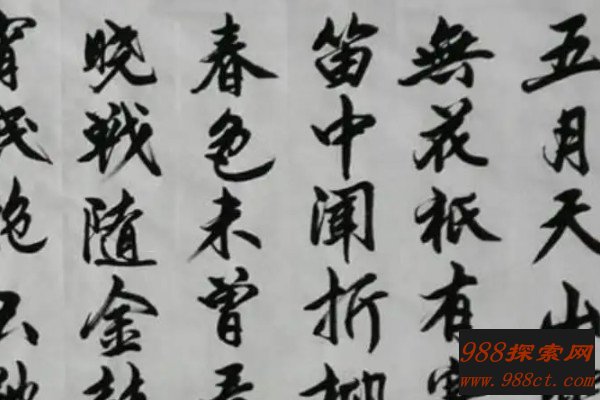 五月天山
無花祇有
笛中聞折柳
春色未曾看
晓戰隨金鼓
宵眠抱
988探索网
www.988ct.com